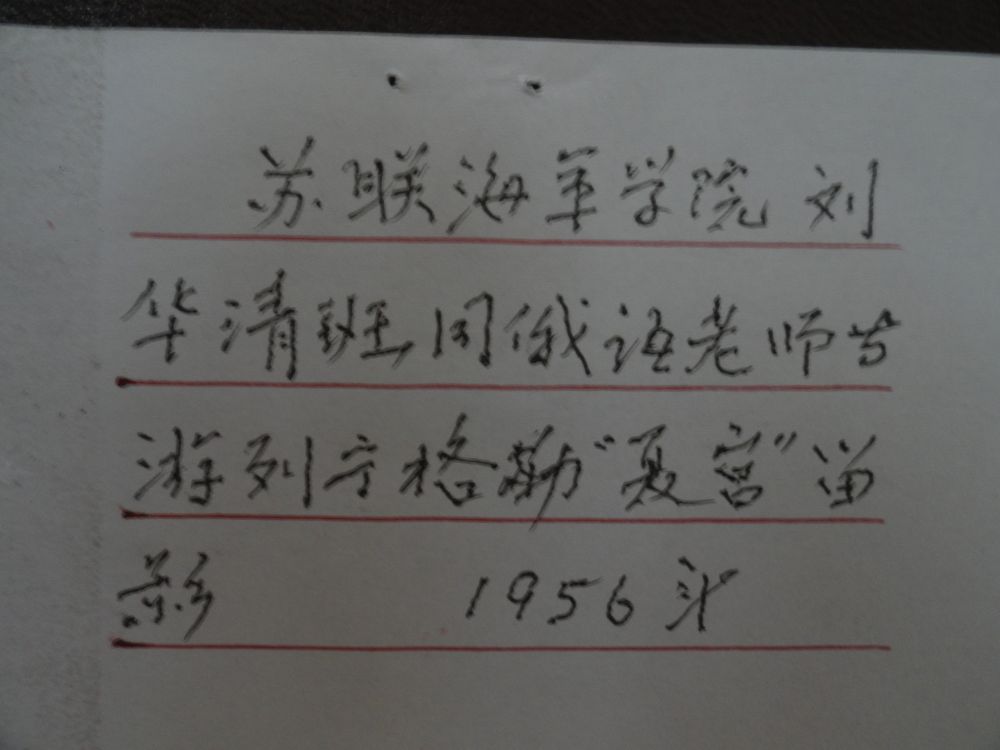 苏联海军学院刘
华清班同俄语老师
游列宁格勒“夏宫”留
影 1956